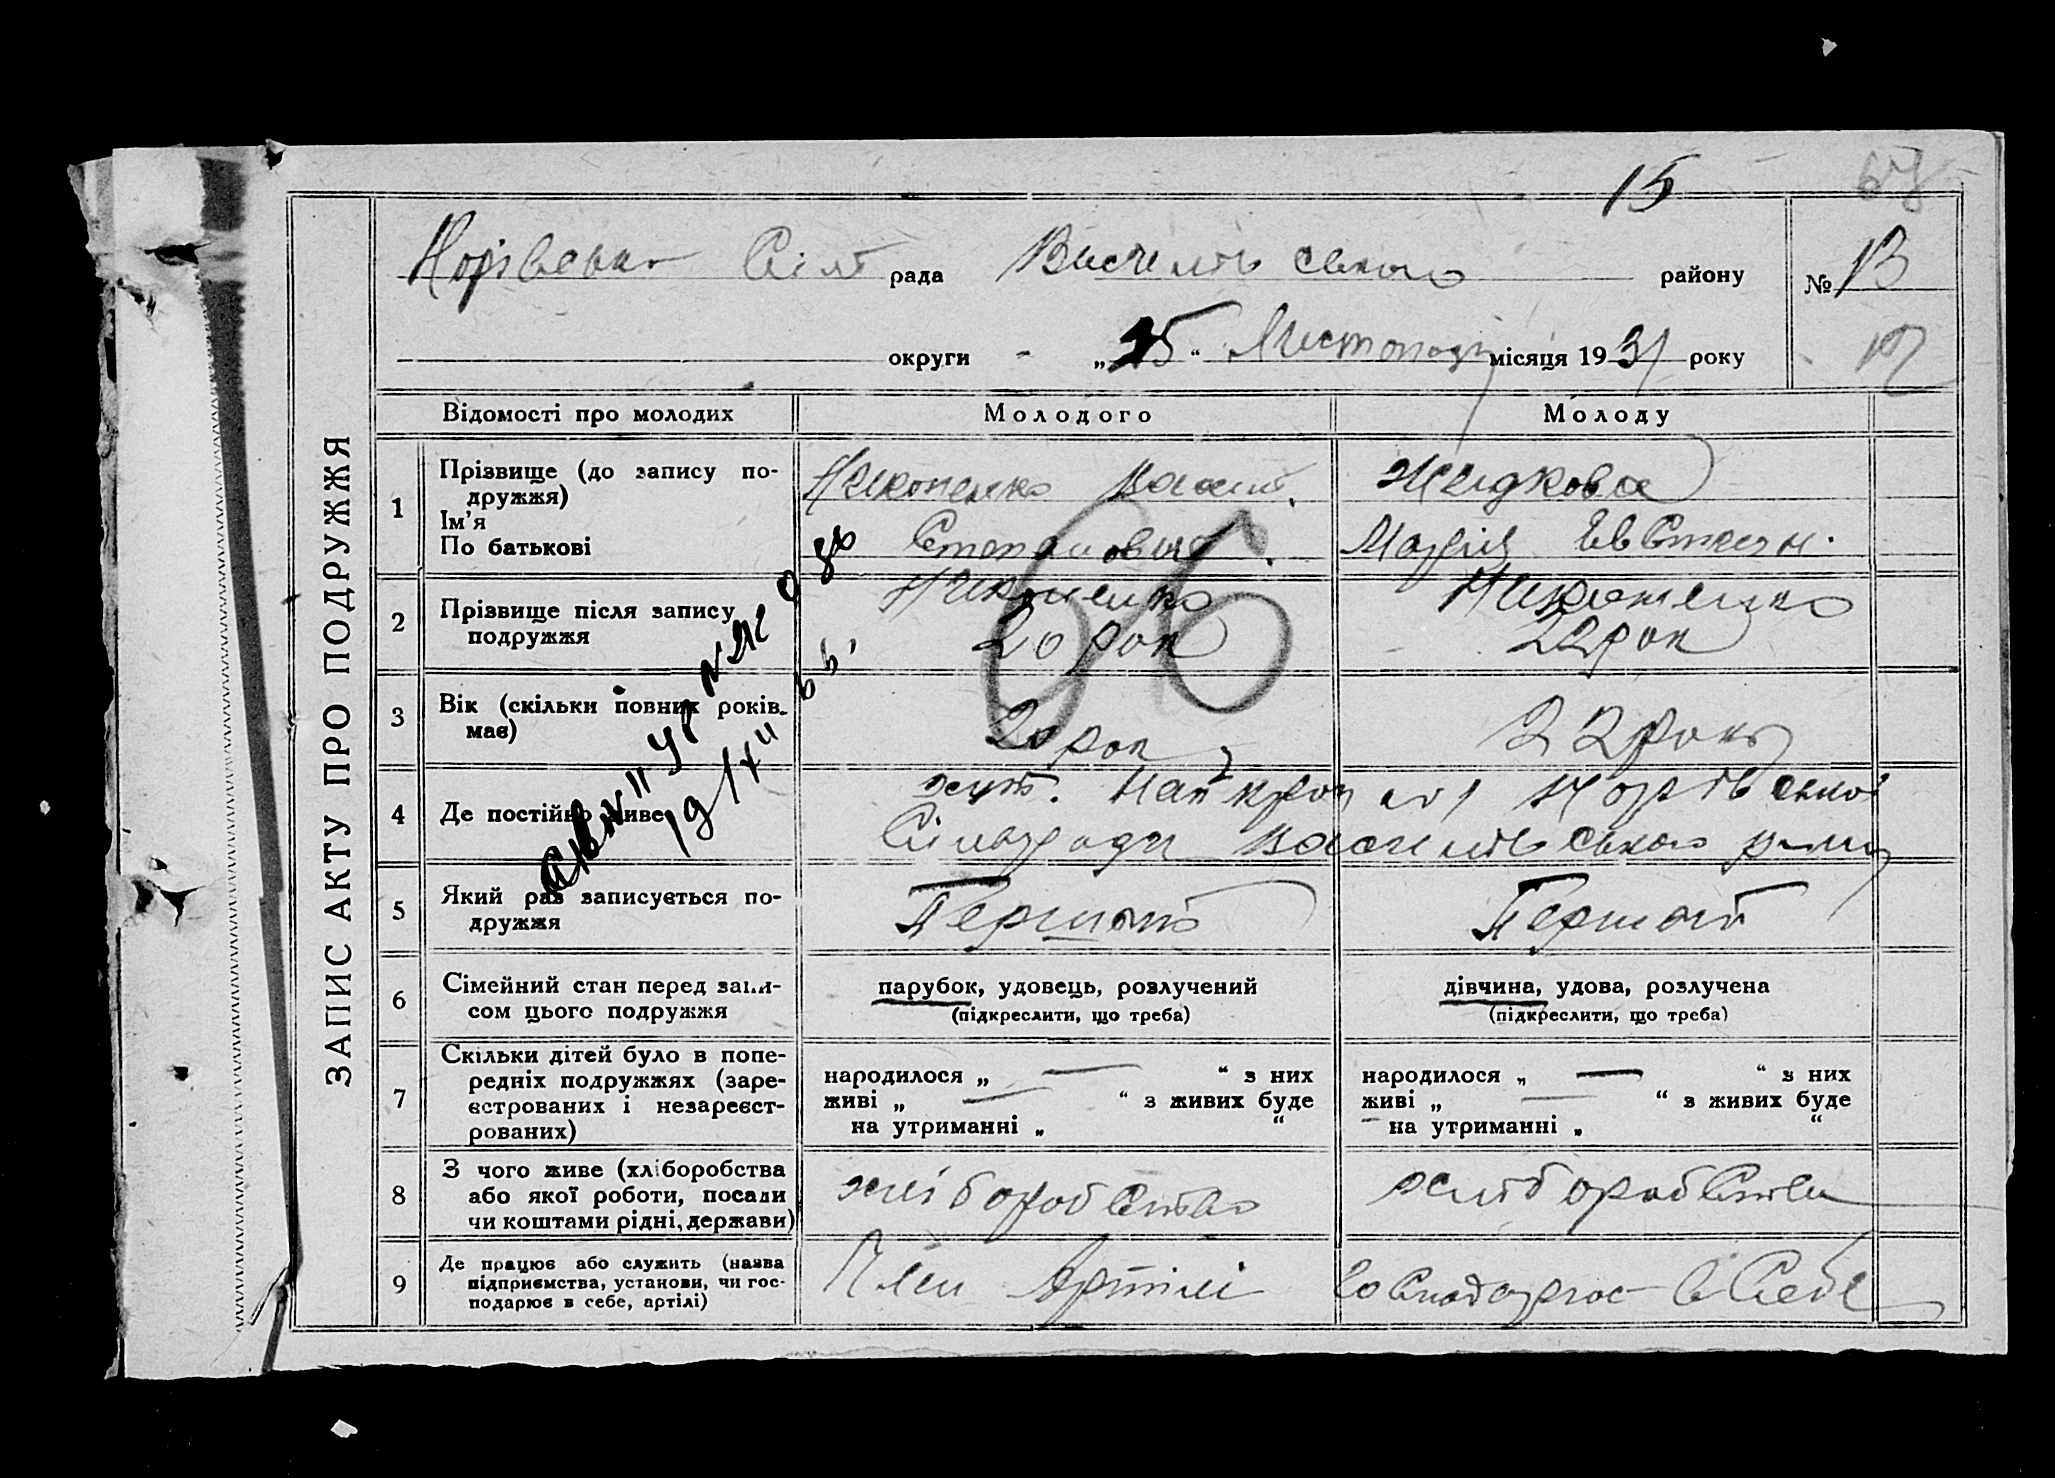 15
67
Норівська Сіль рада Васильківського району № 13
округи - „ 25 “ Листопада місяця 1931 року
ЗАПИС АКТУ ПРО ПОДРУЖЖЯ
Відомості про молодих Молодого Молоду
1 Прізвище (до запису по-
дружжя)
Ім’я
По батькові
Никоненко Васил.
Степанович
Жидкова
Марія Євстахн.
2 Прізвище після запису
подружжя
Никоненко
20 рок
Никоненко
22 рок
66
3 Вік (скільки повних років
має)
20 рок
22 роки
4 Де постійно живе
хут. Норівської
Сільради Васильківського р-ну
5 Який раз записується по-
дружжя
Перший
Перший
6 Сімейний стан перед запи-
сом цього подружжя
парубок, удовець, розлучений
(підкреслити, що треба)
дівчина, удова, розлучена
(підкреслити, що треба)
7 Скільки дітей було в попе-
редніх подружжях (заре-
єстрованих і незареєст-
рованих)
народилося „ — “ з них
живі „ — “ з живих буде
на утриманні „ “
народилося „ — “ з них
живі „ — “ з живих буде
на утриманні „ “
8 З чого живе (хліборобства
або якої роботи, посади
чи коштами рідні, держави)
хліборобство
хліборобства
9 Де працює або служить (назва
підприємства, установи, чи гос-
подарює в себе, артілі)
Член Артілі
Господарює в себе